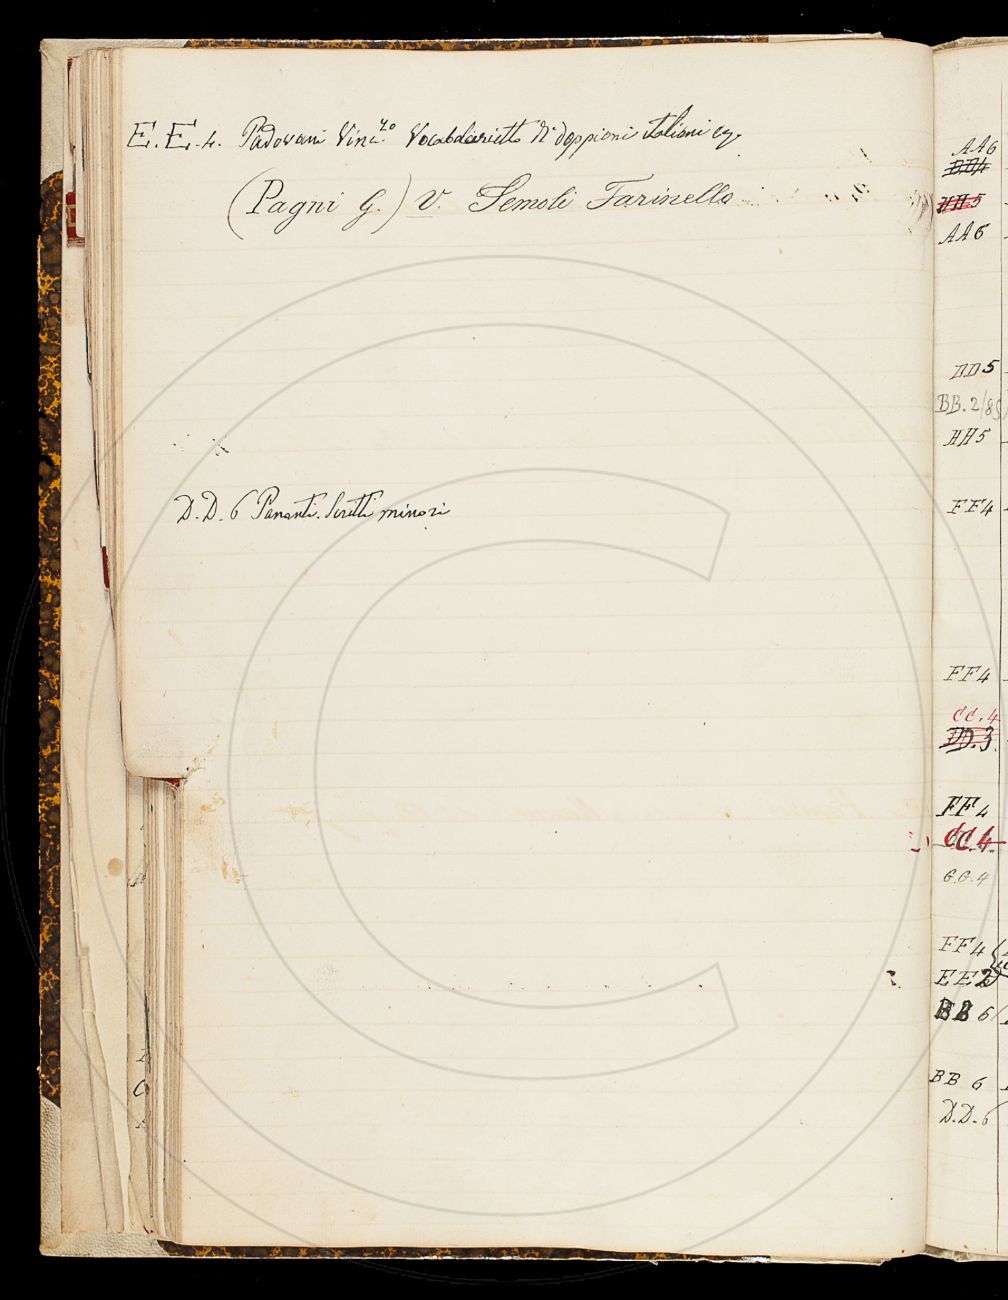 E. E. 4. Padovani Vinc.zo Vocabolarietto di doppioni italiani
(Pagni G.) V. Semoli Farinello
D. D. 6 Pananti. Scritti minori
AA6
DD4
HH5
AA6
DD5
BB. 2/85
HH5
FF4
FF4
CC. 4
DD. 3
FF4
CC. 4
G.G. 4
FF4
EE2
BB 6
BB 6
D.D. 6